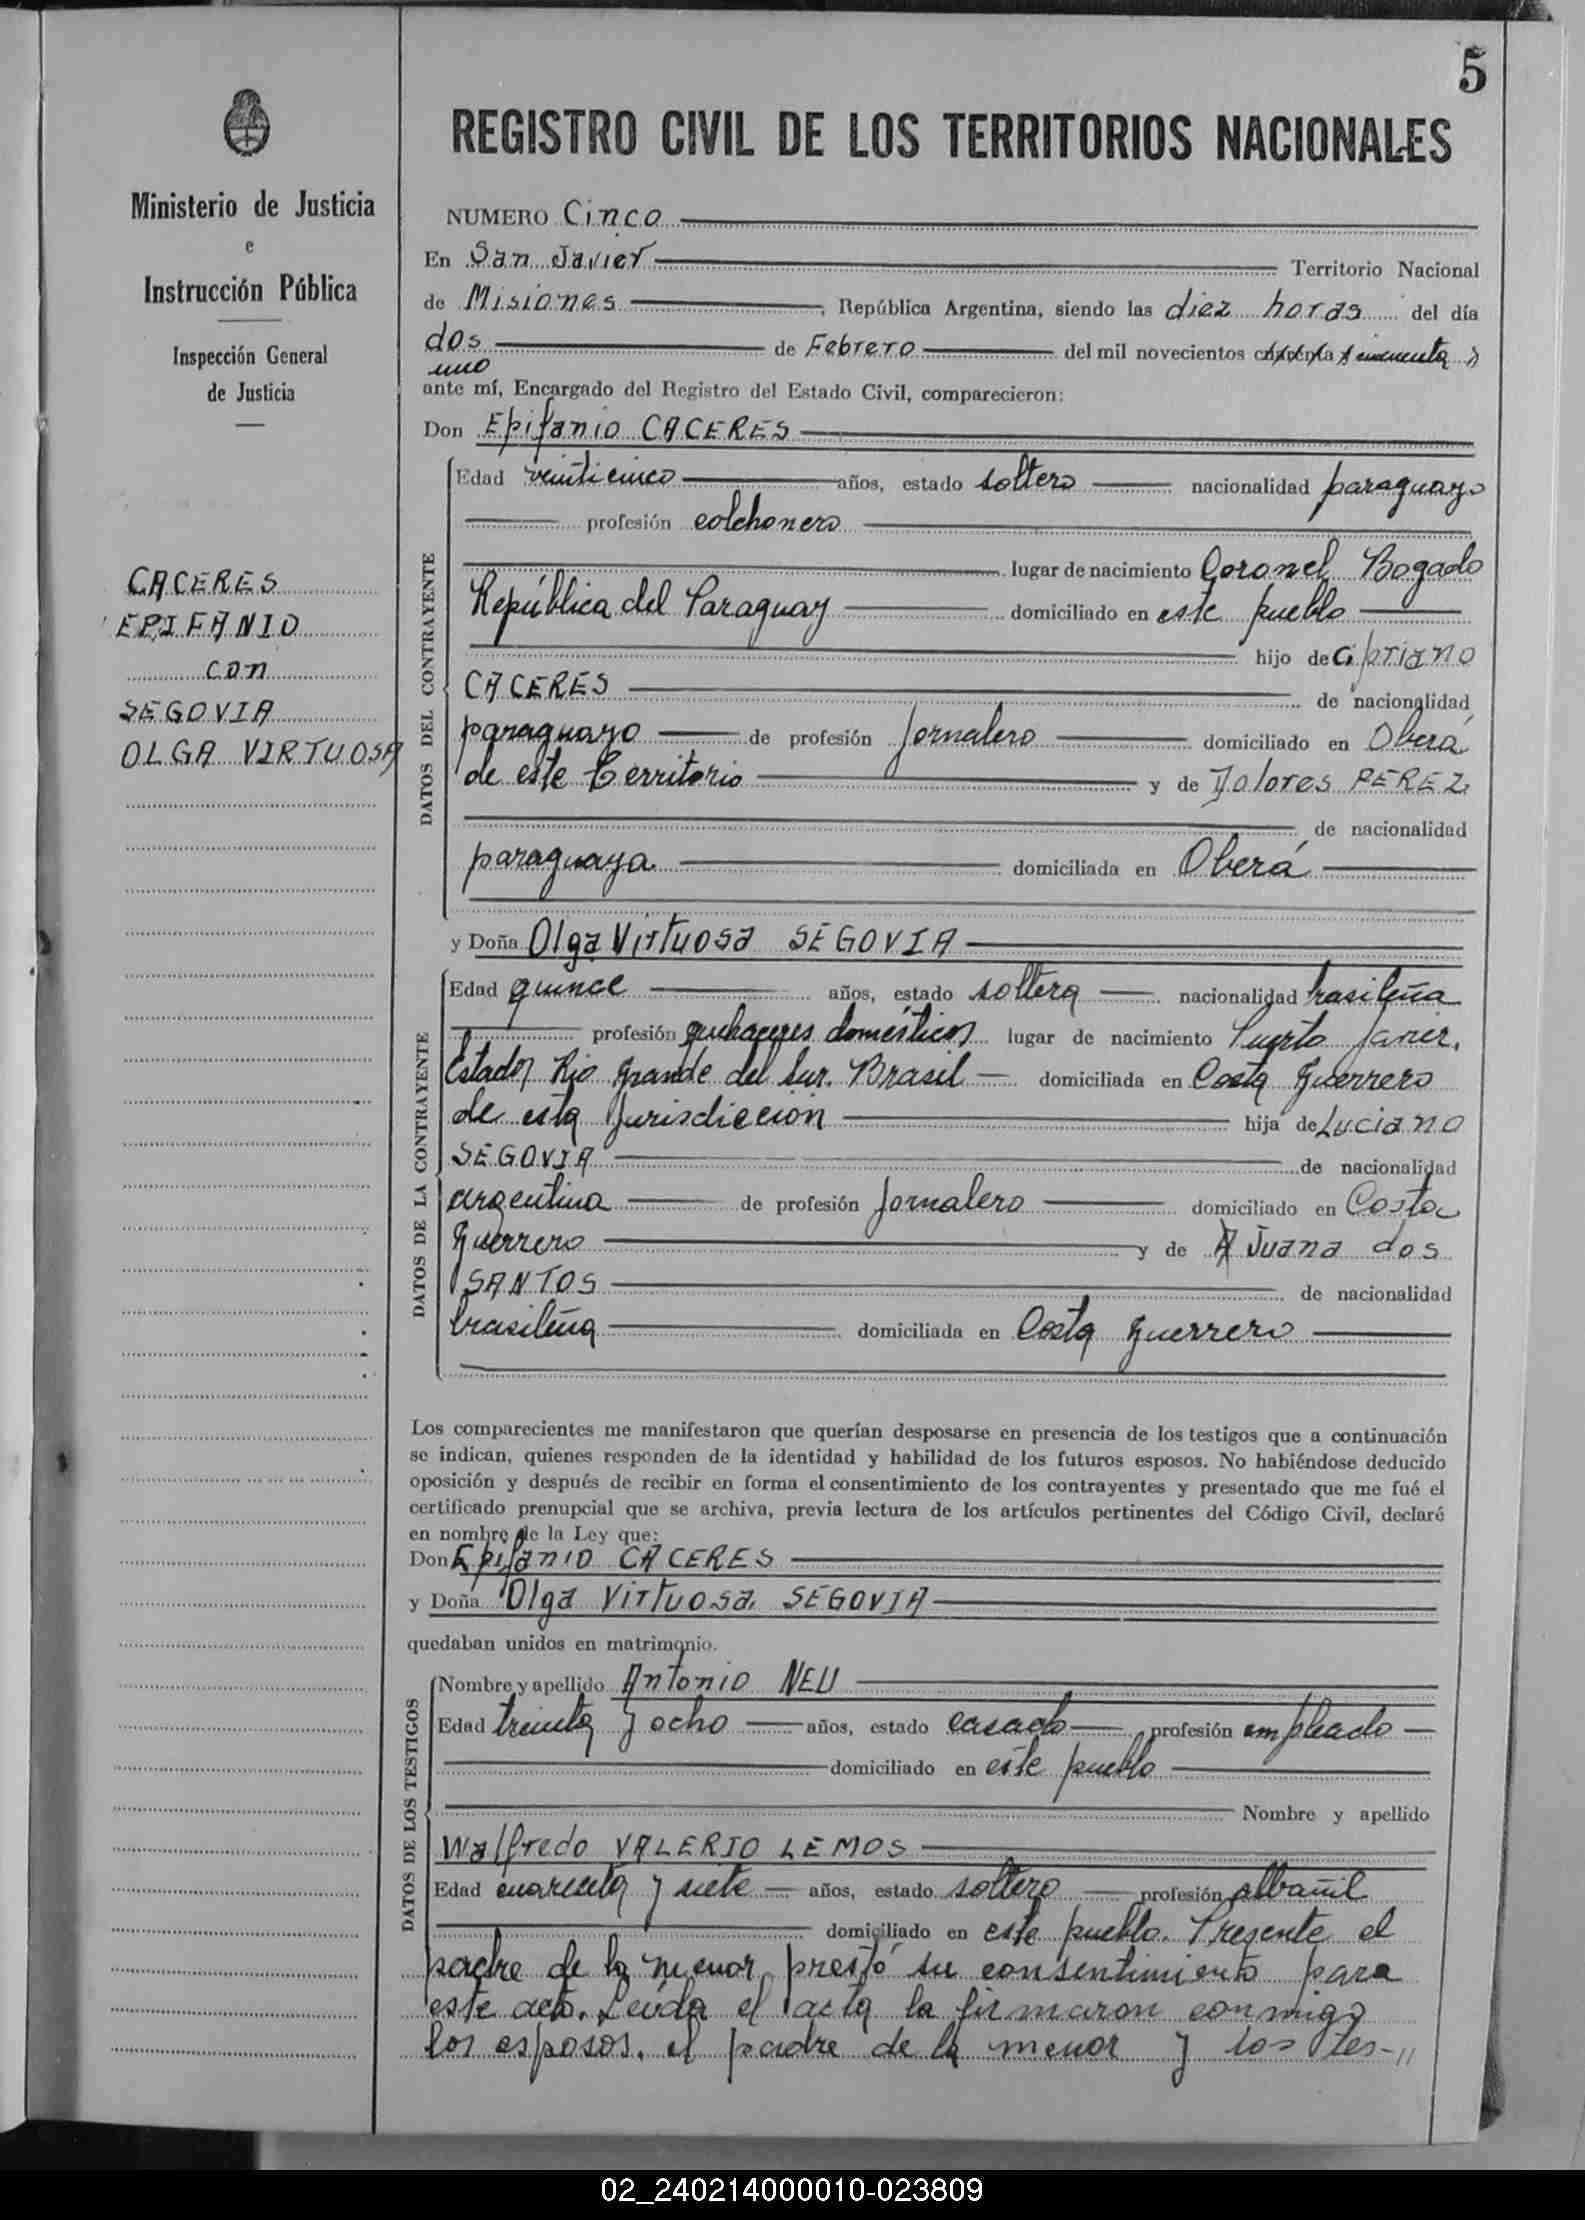 5
REGISTRO CIVIL DE LOS TERRITORIOS NACIONALES
Ministerio de Justicia
e
Instrucción Pública
Inspección General
de Justicia
CACERES
EPIFANIO
con
SEGOVIA
OLGA VIRTUOSA
NUMERO Cinco
En San Javier Territorio Nacional
de Misiones, República Argentina, siendo las diez horas del día
dos de Febrero del mil novecientos cincuenta y
uno
ante mí, Encargado del Registro del Estado Civil, comparecieron:
Don Epifanio CACERES
DATOS DEL CONTRAYENTE
Edad veinticinco años, estado soltero nacionalidad paraguayo
profesión colchonero
lugar de nacimiento Coronel Bogado
República del Paraguay domiciliado en este pueblo
hijo de Cipriano
CACERES de nacionalidad
paraguayo de profesión Jornalero domiciliado en Oberá
de este Territorio y de Dolores PEREZ
de nacionalidad
paraguaya domiciliada en Oberá
y Doña Olga Virtuosa SEGOVIA
DATOS DE LA CONTRAYENTE
Edad quince años, estado soltera nacionalidad brasileña
profesión quehaceres domésticos lugar de nacimiento Puerto Javier,
Estado Rio Grande del Sur. Brasil domiciliada en Costa Guerrero
de esta Jurisdicción hija de Luciano
SEGOVIA de nacionalidad
argentina de profesión Jornalero domiciliado en Costa
Guerrero y de Juana dos
SANTOS de nacionalidad
brasileña domiciliada en Costa Guerrero
Los comparecientes me manifestaron que querían desposarse en presencia de los testigos que a continuación
se indican, quienes responden de la identidad y habilidad de los futuros esposos. No habiéndose deducido
oposición y después de recibir en forma el consentimiento de los contrayentes y presentado que me fué el
certificado prenupcial que se archiva, previa lectura de los artículos pertinentes del Código Civil, declaré
en nombre de la Ley que:
Don Epifanio CACERES
y Doña Olga Virtuosa SEGOVIA
quedaban unidos en matrimonio.
DATOS DE LOS TESTIGOS
Nombre y apellido Antonio NEU
Edad treinta y ocho años, estado casado profesión empleado
domiciliado en este pueblo
Nombre y apellido
Walfredo VALERIO LEMOS
Edad cuarenta y siete años, estado soltero profesión albañil
domiciliado en este pueblo. Presente el
padre de la menor prestó su consentimiento para
este acto. Leída el acta la firmaron conmigo
los esposos, el padre de la menor y los tes-//
02_240214000010-023809